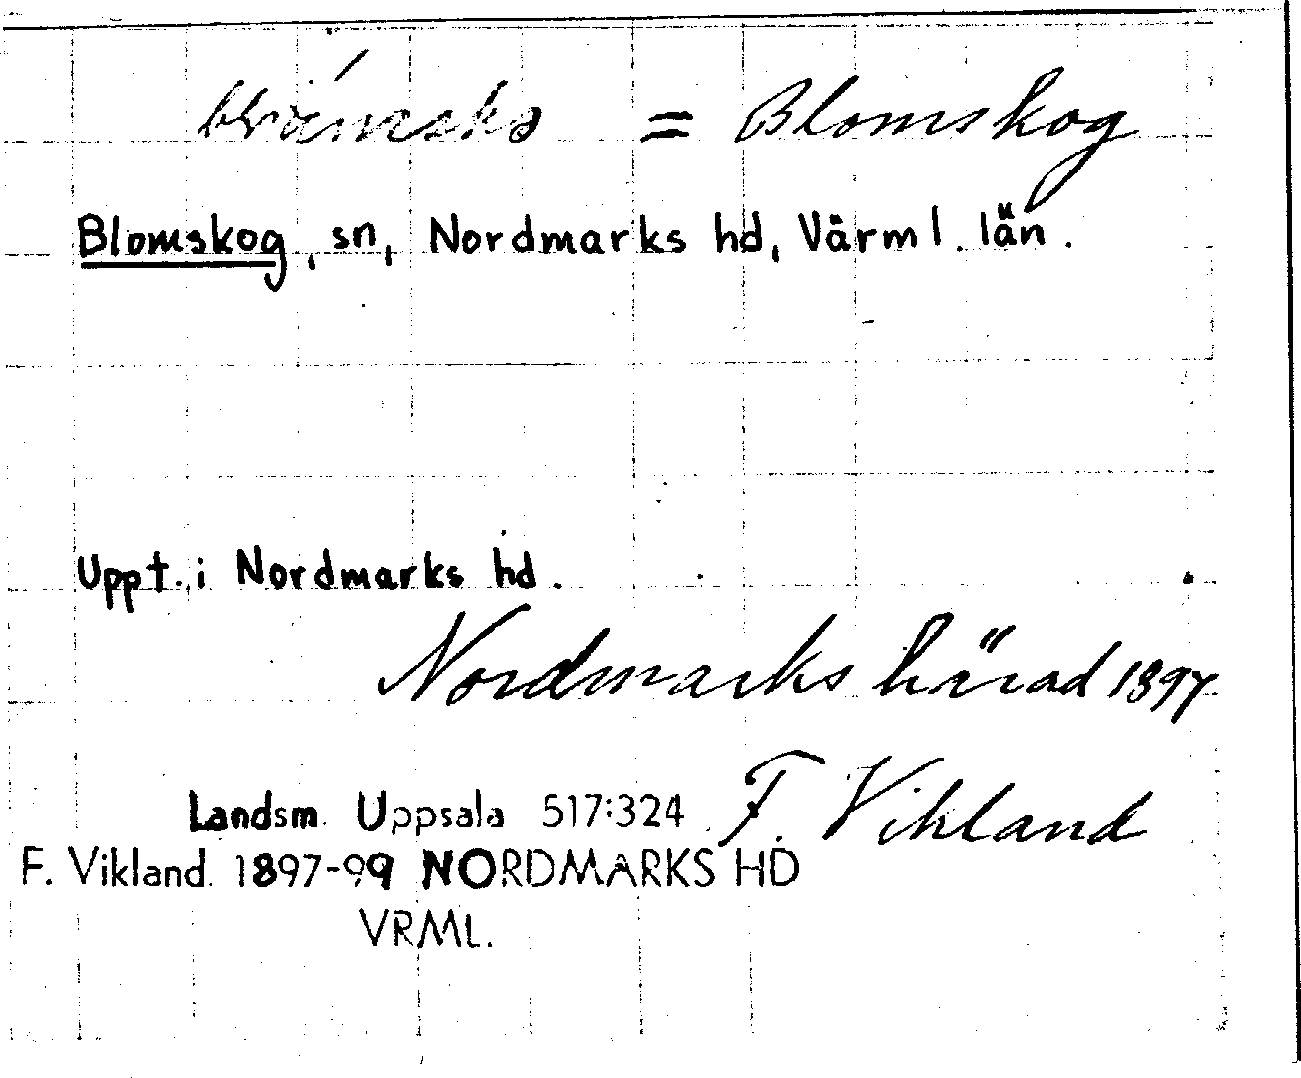 = Blomskog
Blomskog, sn, Nordmarks hd, Värml. län.
Uppt. i Nordmarks hd.
Nordmarks härad 1897
F. Vikland
Landsm. Uppsala 517:324
F. Vikland. 1897-99 NORDMARKS HD
VRML.